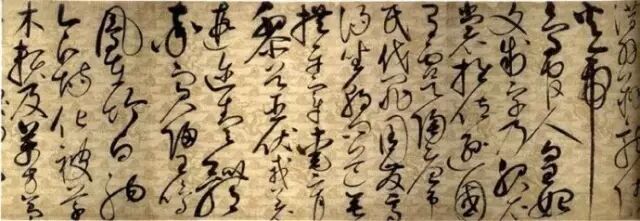 淡鱗潛羽翔龍師
火帝
鳥官人皇始
制文字乃服衣
裳推位遜國
有虞陶唐弔
民伐罪周發商
湯坐朝問道垂
拱平章愛育
黎首臣伏戎羌
遐邇壹體
率賓歸王鳴
鳳在竹白駒
食場化被草
木賴及萬方蓋